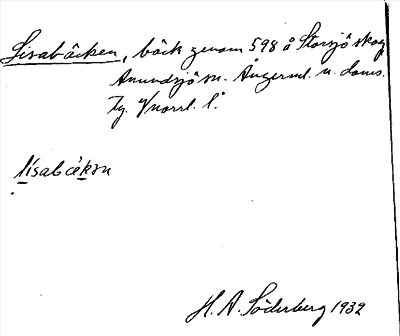 Lisabäcken, bäck genom 598 å Storsjö skog
Anundsjö sn. Ångerml. n. doms.
Tg. V/norrl. l.
lísabækən
H. A. Söderberg 1932